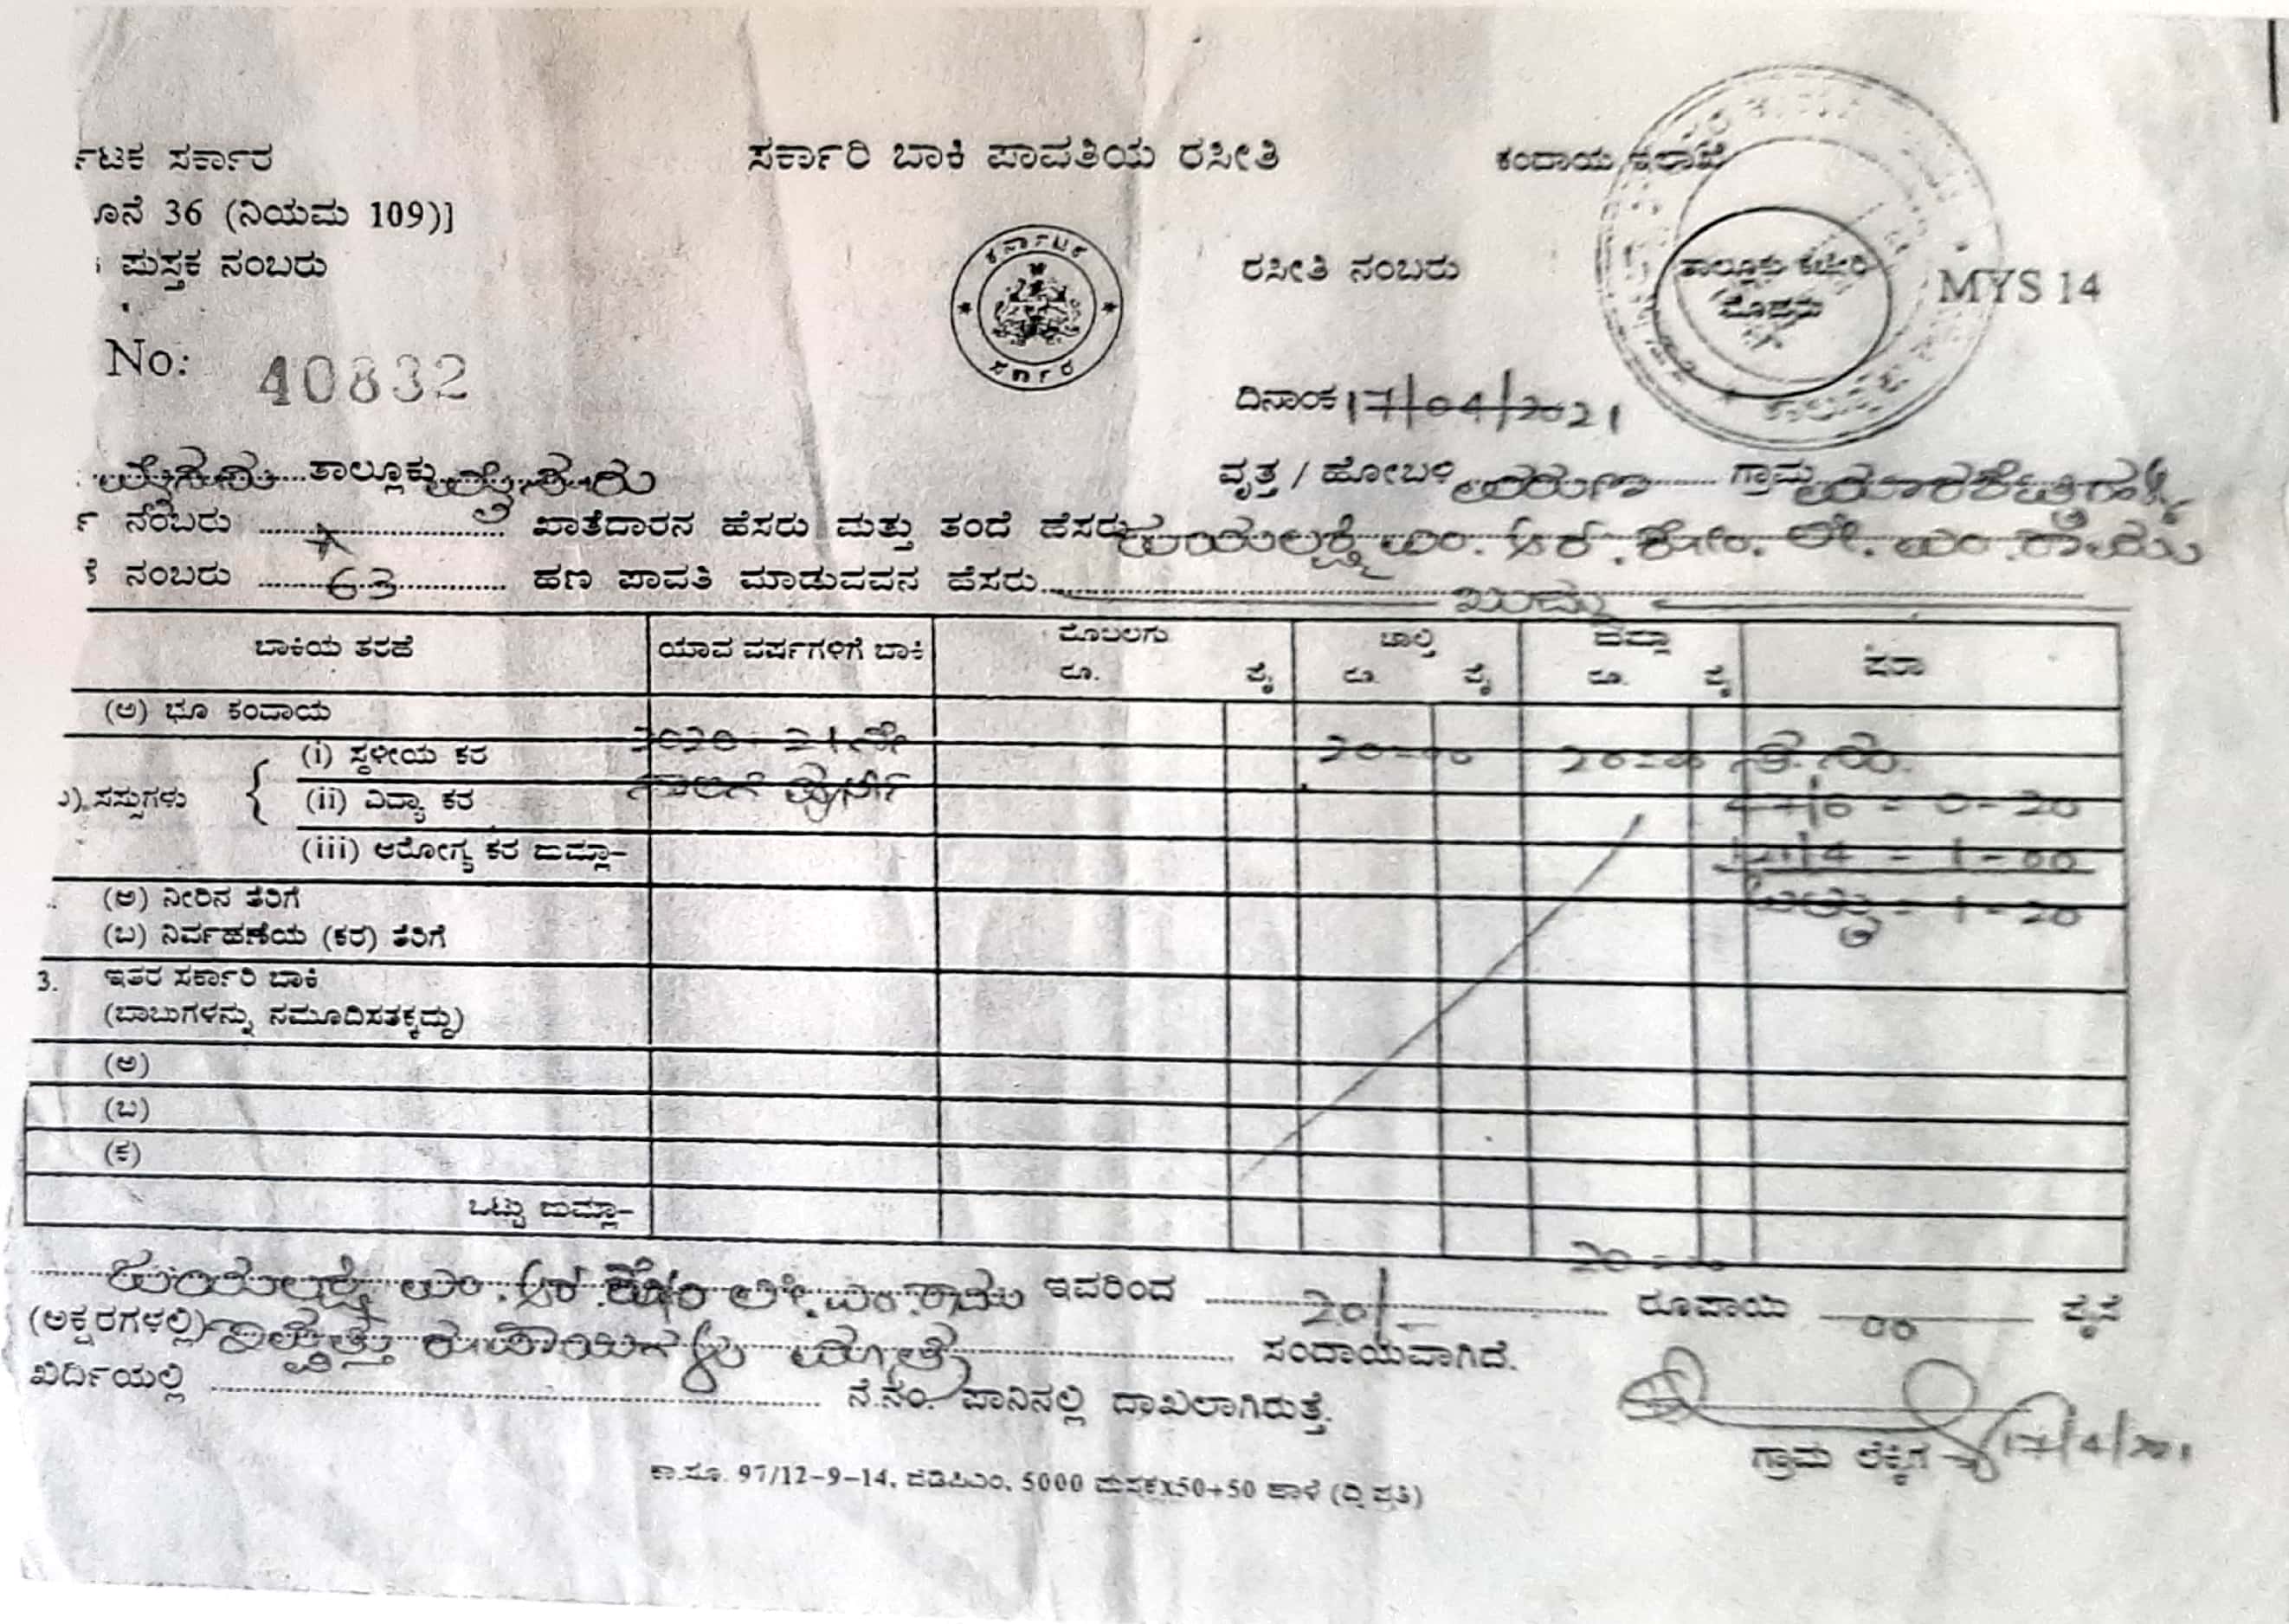 ರ್ಟಕ ಸರ್ಕಾರ ಸರ್ಕಾರಿ ಬಾಕಿ ಪಾವತಿಯ ರಸೀತಿ ಕಂದಾಯ ಇಲಾಖೆ
ೂನೆ 36 (ನಿಯಮ 109)]
ಪುಸ್ತಕ ನಂಬರು ಕರ್ನಾಟಕ ಸರ್ಕಾರ ರಸೀತಿ ನಂಬರು ತಾಲ್ಲೂಕು ಕಚೇರಿ MYS 14
No: 40832
ದಿನಾಂಕ 17/04/2021
ಮೈಸೂರು ತಾಲ್ಲೂಕು ಮೈಸೂರು ವೃತ್ತ / ಹೋಬಳಿ ವರುಣಾ ಗ್ರಾಮ
ನಂಬರು ಖಾತೆದಾರನ ಹೆಸರು ಮತ್ತು ತಂದೆ ಹೆಸರು ಜಯಲಕ್ಷ್ಮಿ ಎಂ. ಆರ್. ಕೋಂ. ಲೇ. ಎಂ. ರಾಮು
ನಂಬರು 63 ಹಣ ಪಾವತಿ ಮಾಡುವವನ ಹೆಸರು ಖುದ್ದು
ಬಾಕಿಯ ತರಹೆ ಯಾವ ವರ್ಷಗಳಿಗೆ ಬಾಕಿ ಮೊಬಲಗು ರೂ. ಪೈ ಚಾಲ್ತಿ ರೂ. ಪೈ ಜುಮ್ಲಾ ರೂ. ಪೈ ಷರಾ
(ಅ) ಭೂ ಕಂದಾಯ
(i) ಸ್ಥಳೀಯ ಕರ 2020-21ನೇ 20=00 20=00 ಸ.ನಂ.
) ಸಸ್ಸುಗಳು { (ii) ವಿದ್ಯಾ ಕರ ಸಾಲಿಗೆ ಪೂರ್ತಿ = 0-20
(iii) ಆರೋಗ್ಯ ಕರ ಜುಮ್ಲಾ- = 1-00
(ಅ) ನೀರಿನ ತೆರಿಗೆ ಒಟ್ಟು = 1-20
(ಬ) ನಿರ್ವಹಣೆಯ (ಕರ) ತೆರಿಗೆ
3. ಇತರ ಸರ್ಕಾರಿ ಬಾಕಿ
(ಬಾಬುಗಳನ್ನು ನಮೂದಿಸತಕ್ಕದ್ದು)
(ಅ)
(ಬ)
(ಕ)
ಒಟ್ಟು ಜುಮ್ಲಾ- 20=00
ಜಯಲಕ್ಷ್ಮಿ ಎಂ. ಆರ್. ಕೋಂ ಲೇ. ಎಂ. ರಾಮು ಇವರಿಂದ 20/- ರೂಪಾಯಿ 00 ಪೈಸೆ
(ಅಕ್ಷರಗಳಲ್ಲಿ) ಇಪ್ಪತ್ತು ರೂಪಾಯಿಗಳು ಮಾತ್ರ ಸಂದಾಯವಾಗಿದೆ.
ಖರ್ದಿಯಲ್ಲಿ ನೆ.ನಂ. ಪಾನಿನಲ್ಲಿ ದಾಖಲಾಗಿರುತ್ತೆ.
ಗ್ರಾಮ ಲೆಕ್ಕಿಗ 17/4/2021
ಕಾ.ಸೂ. 97/12-9-14, ಜಿಡಿಪಿಎಂ, 5000 ಪುಸ್ತಕx50+50 ಹಾಳೆ (ದ್ವಿ ಪ್ರತಿ)